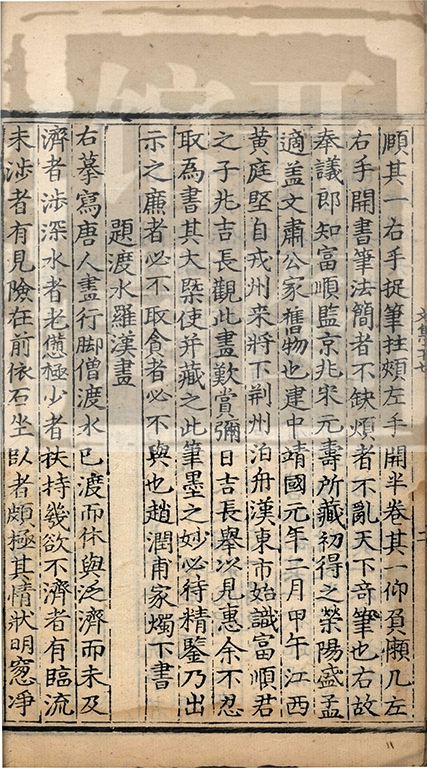 頋其一右手捉筆拄頰左手開半卷其一仰負懶几左
右手開書筆法簡者不缺煩者不亂天下竒筆也右故
奉議郎知富順監京兆宋元壽所藏初得之滎陽盛孟
適盖文肅公家舊物也建中靖國元年二月甲午江西
黄庭堅自戎州来將下荆州泊舟漢東市始識富順君
之子兆吉長觀此畫歎賞彌日吉長舉以見惠余不忍
取爲書其大槩使并藏之此筆墨之妙必待精鑒乃出
示之廉者必不取貪者必不與也趙潤甫家燭下書
題渡水羅漢畫
右摹寫唐人畫行脚僧渡水已渡而休與泛濟而未及
濟者涉深水者老憊極少者扶持幾欲不濟者有臨流
未涉者有見險在前依石坐卧者頗極其情狀明窓净
文集二十七
二